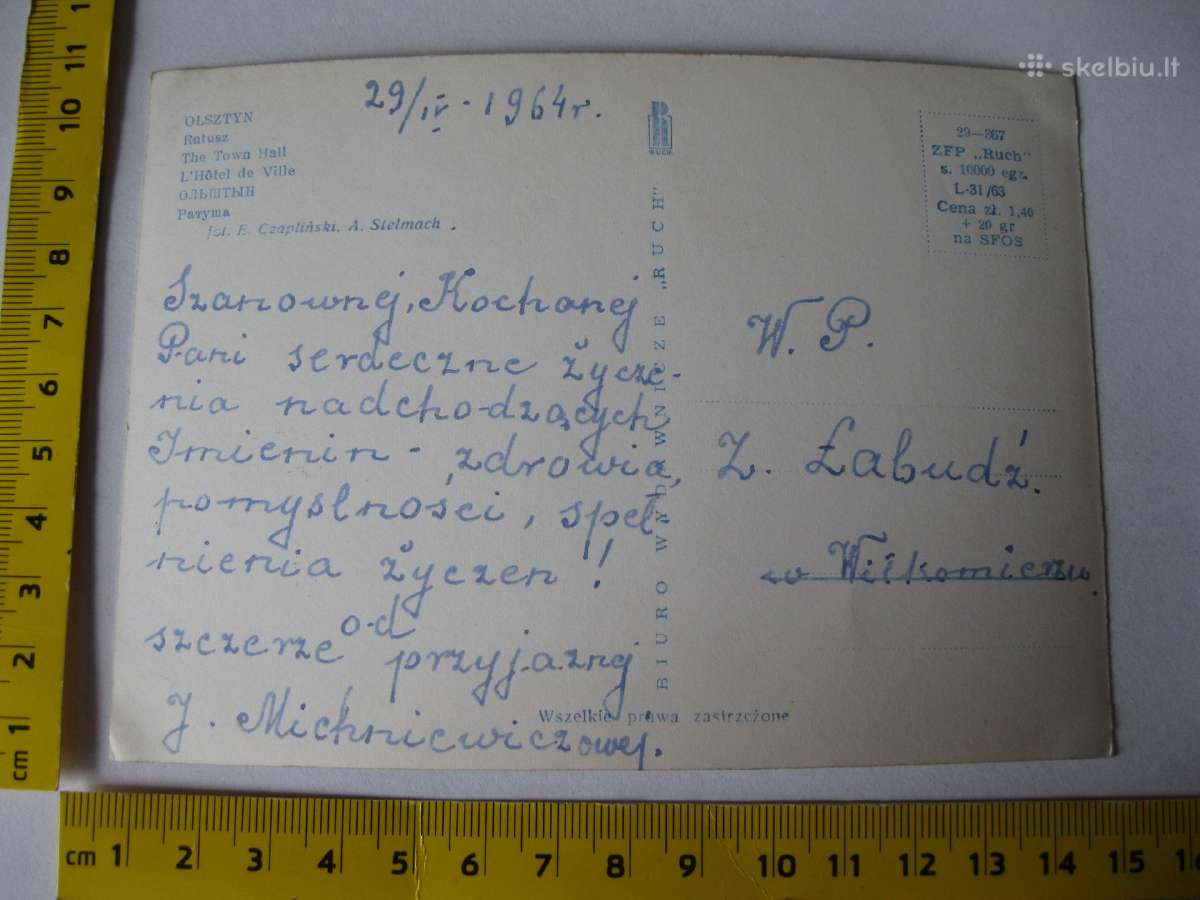 skelbiu.lt
29/IV - 1964 r.
OLSZTYN
Ratusz
The Town Hall
L'Hôtel de Ville
ОЛЬШТЫН
Ратуша
fot. E. Czapliński, A. Stelmach
RUCH
29—367
ZFP „Ruch"
s. 10000 egz.
L-31/63
Cena zł. 1,40
+ 20 gr
na SFOS
Szanownej, Kochanej
Pani serdeczne życze-
nia nadchodzących
Imienin - zdrowia,
pomyślności, speł-
nienia życzeń!
od
szczerze przyjaznej
J. Michniewiczowej.
BIURO WYDAWNICZE „RUCH"
W. P.
Z. Łabudź.
w Wiłkomierzu.
Wszelkie prawa zastrzeżone
cm 1 2 3 4 5 6 7 8 9 10 11 1
cm 1 2 3 4 5 6 7 8 9 10 11 12 13 14 15 16